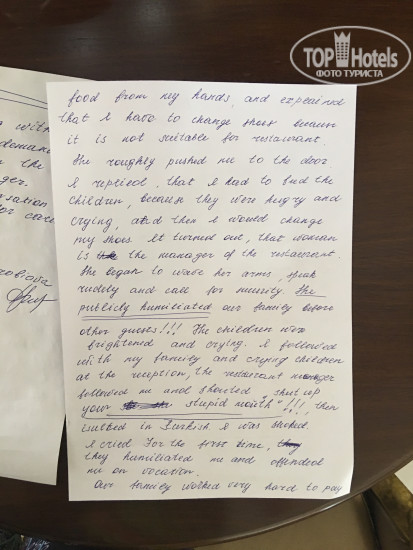 TOP Hotels
ФОТО ТУРИСТА
food from my hands, and explained
that I have to change shoes because
it is not suitable for restaurant.
She roughly pushed me to the door
I replied, that I had to feed the
children, because they were hungry and
crying, and then I would change
my shoes. It turned out, that woman
is the manager of the restaurant.
She began to wave her arms, speak
rudely and call for security. She
publicly humiliated our family before
other guests!!! The children were
frightened and crying. I followed
with my family and crying children
at the reception, the restaurant manager
followed me and shouted "shut up
your stupid mouth"!!!, then
insulted in Turkish. I was shocked.
I cried for the first time,
they humiliated me and offended
me on vocation.
Our family worked very hard to pay
with
demand
the
ger.
sation
for